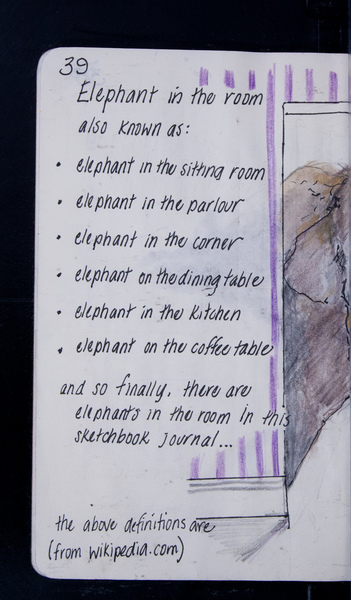 39
Elephant in the room
also known as:
• elephant in the sitting room
• elephant in the parlour
• elephant in the corner
• elephant on the dining table
• elephant in the kitchen
• elephant on the coffee table
and so finally, there are
elephants in the room in this
sketchbook journal...
the above definitions are
(from wikipedia.com)